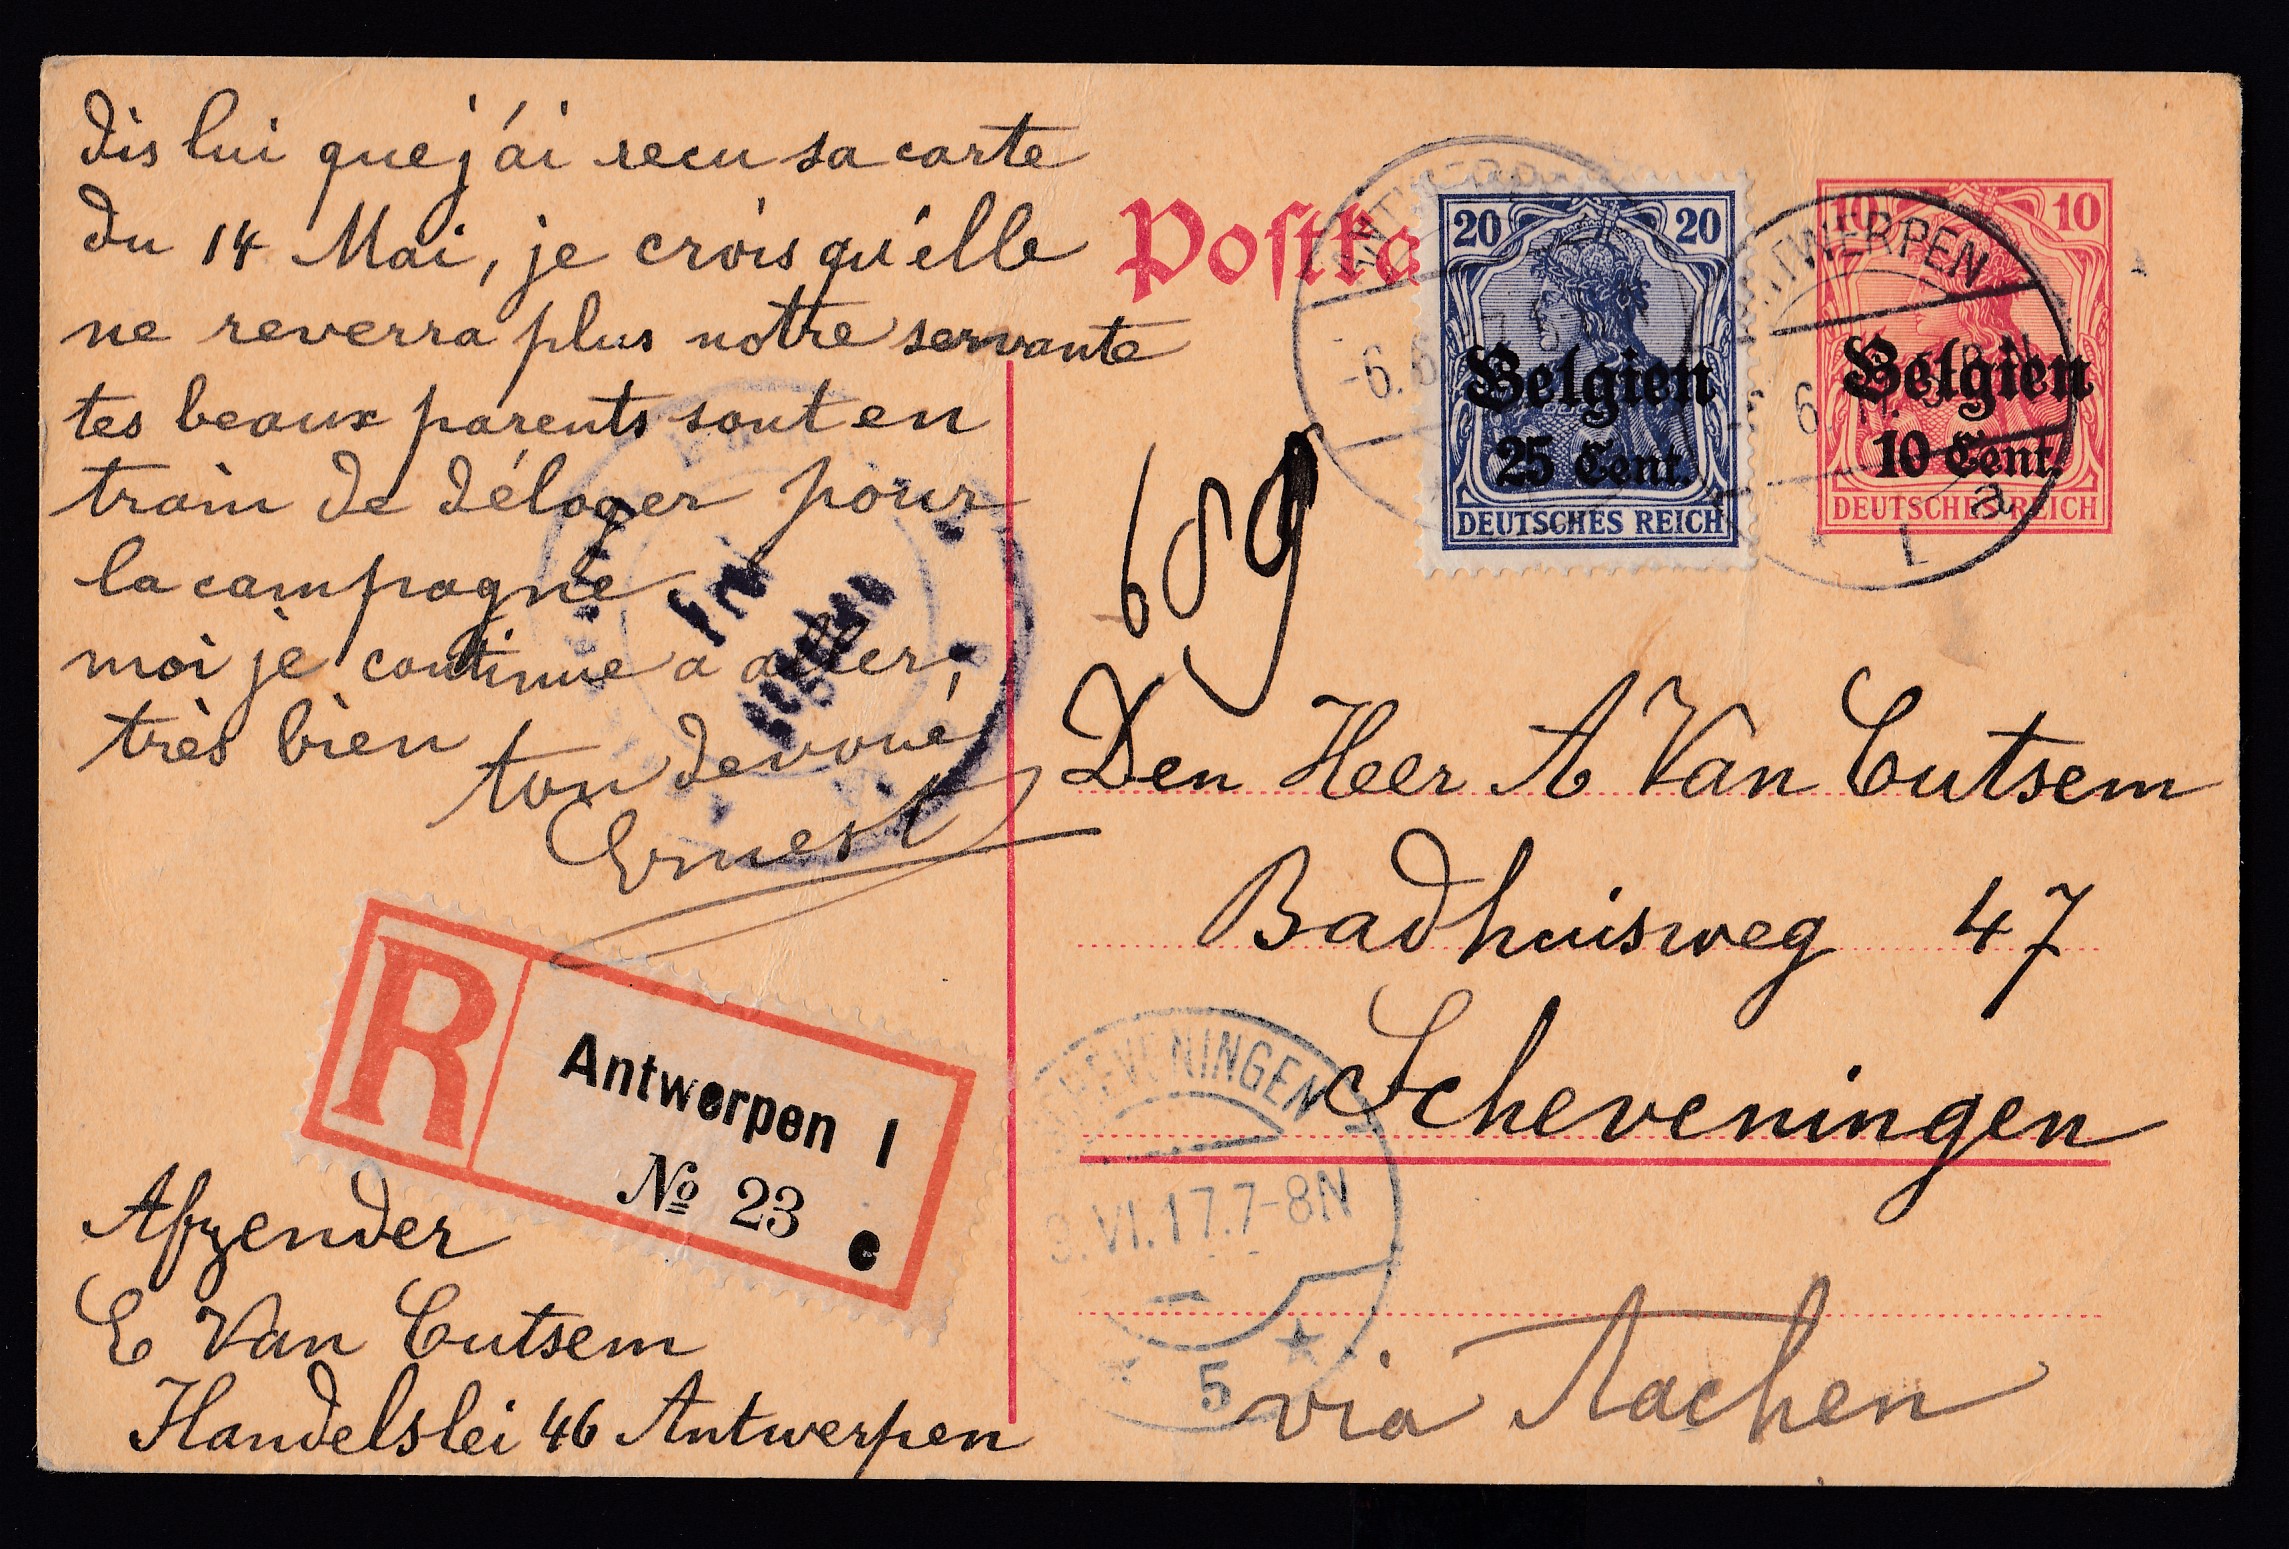 dis lui que j'ai recu sa carte
du 14 Mai, je crois qu'elle
ne reverra plus notre servante
tes beaux parents sont en
train de déloger pour
la campagne
moi je continue a aller,
très bien
ton devoué
Ernest
R
Antwerpen 1
№ 23
e
Afzender
E Van Cutsem
Handelslei 46 Antwerpen
Postka
20 20
Belgien
25 Cent.
DEUTSCHES REICH
10 10
Belgien
10 Cent.
DEUTSCHES REICH
ANTWERPEN
1 a
Den Heer A Van Cutsem
Badhuisweg 47
Scheveningen
SCHEVENINGEN
VI.17.7-8N
5
via Aachen